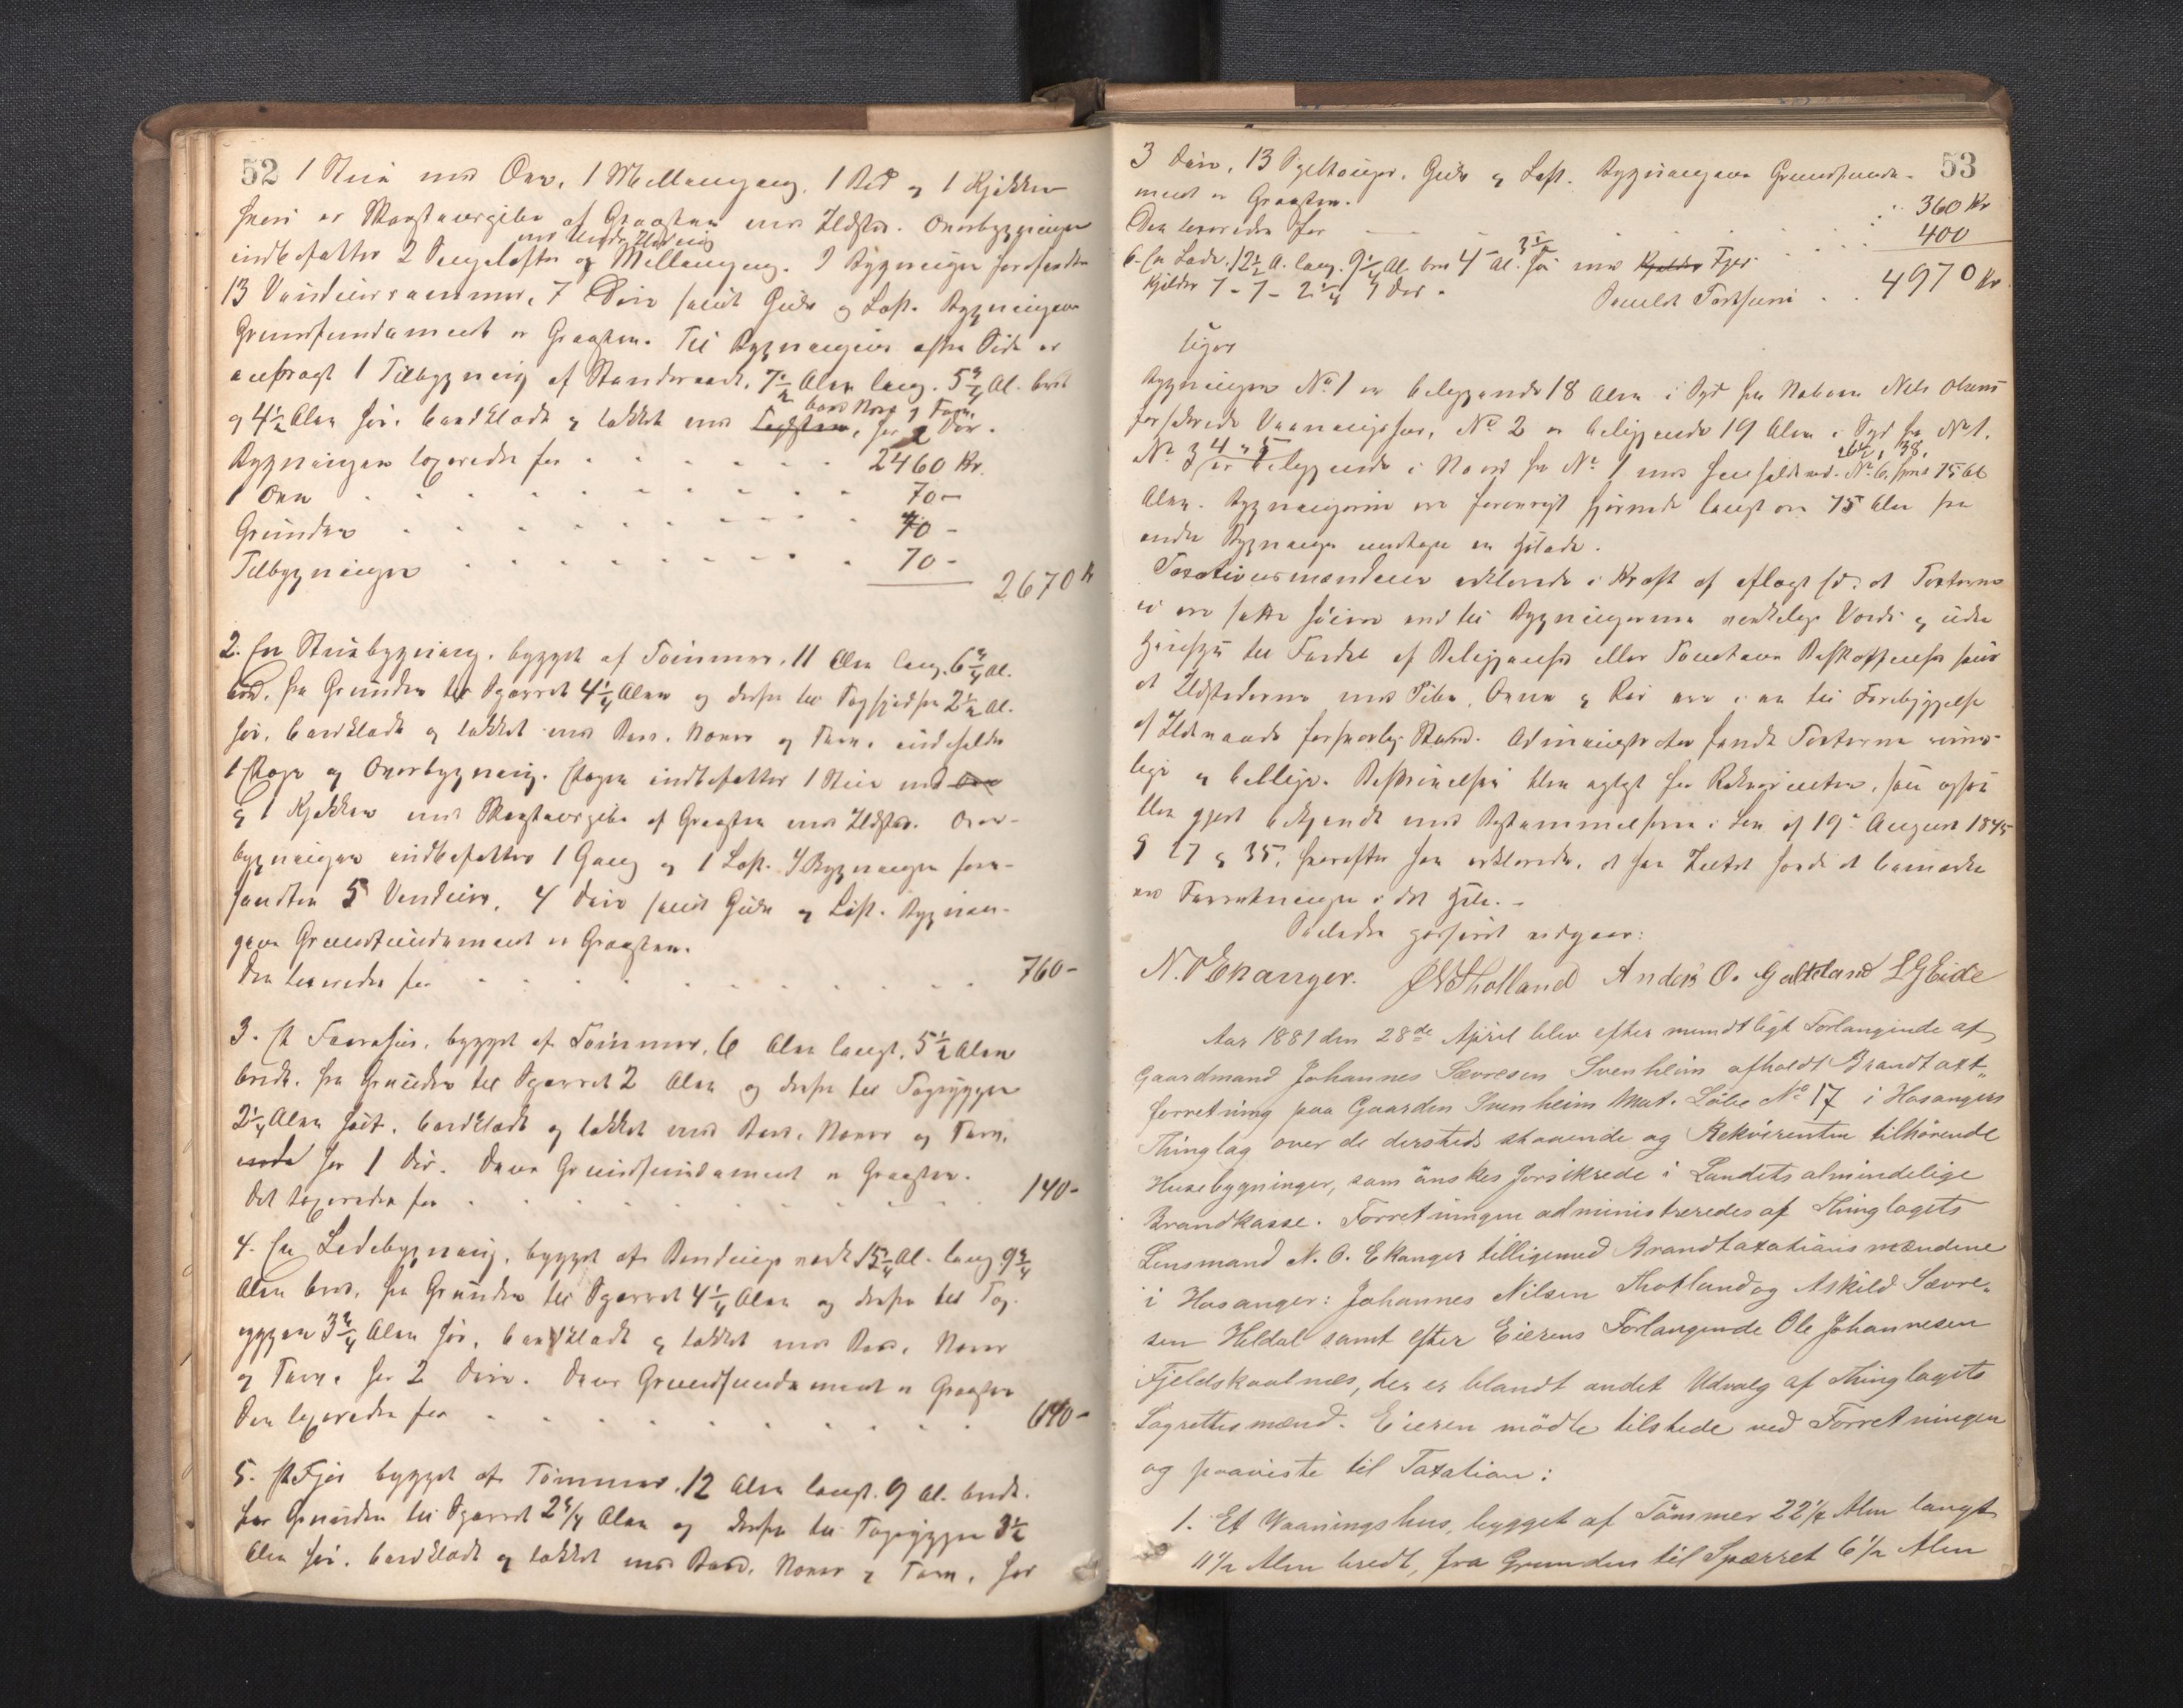 52
1 Stue med Ovn, 1 Mellemgang, 1 Bod og 1 Kjøkken
hvori er Skorstenspibe af Graasten med Ildsted. Overbygningen
med
indbefatter 2 Sengelofter og Mellemgang. I Bygningen forefindes
13 Vinduesrammer, 7 Døre samt Gulv og Loft. Bygningens
Grundfundament er Graasten. Til Bygningens Side er
anbragt 1 Tilbygning af Standerværk, 7 1/2 Alen lang, 5 3/4 Al. bred
Bord Næver og Tørv,
og 4 1/2 Alen høi, bordklædt og tækket med har 2 Dør.
Bygningen taxeredes for 2460 Kr.
1 Ovn 70 -
Grunden 70 -
Tilbygningen 70 -
2670 Kr
2. En Stuebygning, bygget af Tømmer, 11 Alen lang, 6 3/4 Al.
bred, fra Grunden til Sparret 4 1/4 Alen og derfra til Tag 2 1/2 Al.
høi, bordklædt og tækket med Bord, Næver og Tørv, indeholder
1 Etage og Overbygning. Etagen indbefatter 1 Stue med Ovn
og 1 Kjøkken med Skorstenspibe af Graasten med Ildsted. Over-
bygningen indbefatter 1 Gang og 1 Loft. I Bygningen fore-
findes 5 Vinduer, 4 Døre samt Gulv og Loft. Bygnin-
gens Grundfundament er Graasten.
Den taxeredes for 760 -
3. Et Faarehus, bygget af Tømmer, 6 Alen langt, 5 1/2 Alen
bredt, fra Grunden til Sparret 2 Alen og derfra til Tagryggen
2 1/4 Alen høit, bordklædt og tækket med Bord, Næver og Tørv,
har 1 Dør. Dens Grundfundament er Graasten.
Det taxeredes for 140 -
4. En Ladebygning, bygget af Bindingsværk 15 3/4 Al. lang 9 3/4
Alen bred, fra Grunden til Sparret 4 1/4 Alen og derfra til Tag-
ryggen 3 3/4 Alen høi, bordklædt og tækket med Bord, Næver
og Tørv, har 2 Døre. Dens Grundfundament er Graasten
Den taxeredes for 640 -
5. Et Fjøs bygget af Tømmer, 12 Alen langt, 9 Al. bredt,
fra Grunden til Sparret 2 3/4 Alen og derfra til Tagryggen 3 1/2
Alen høi, bordklædt og tækket med Bord, Næver og Tørv, har
53
3 Døre, 13 Gulv og Loft. Bygningens Grundfunda-
ment er Graasten.
Den taxeredes for 360 Kr
6. En Lade, 12 1/2 A. lang, 9 1/4 Al. bred 4 - Al. høi med Fjøs 400
Kjelder 7 - 7 - 2 1/4 1 Dør.
Samlet Taxtsum 4970 Kr
Bygningen No 1 er beliggende 18 Alen i Syd fra Naboen Nels Olsens
forsikrede Vaaningshus, No 2 er beliggende 19 Alen i Syd fra No 1.
No 3 4 og 5 er beliggende i Nord fra No 1 med henholdsvis No 6, 75 Al
Alen. Bygningerne ere forøvrigt fjernede langt over 75 Alen fra
andre Bygninger undtagen en Hølade.
Taxationsmændene erklærede i Kraft af aflagt Ed, at Taxterne
ei ere satte høiere end til Bygningernes virkelige Værdi og uden
Hensyn til Fordel af Beliggenhed eller Tomtens Beskaffenhed samt
at Ildstederne med Piber, Ovne og Rør ere i en til Forebyggelse
af Ildsvaade forsvarlig Stand. Administrator fandt Taxterne rime-
lige og billige. Beskrivelsen blev oplæst for Rekvirenten, som ogsaa
blev gjort bekjendt med Bestemmelserne i Lov af 19de August 1845
§ 27 og 35, hvorefter han erklærede, at han Intet havde at bemærke
ved Forretningen i det Hele. -
Saaledes passeret vidgaar:
N. O Ekanger. J N Tholland Anders O. Galteland L G Eide
Aar 1881 den 28de April blev efter mundtligt Forlangende af
Gaardmand Johannes Sævresen Ivenheim afholdt Brandtaxt-
forretning paa Gaarden Ivenheim Mat. Løbe No 17 i Hosangers
Thinglag over de dersteds staaende og Rekvirenten tilhørende
Husebygninger, som ønskes forsikrede i Landets almindelige
Brandkasse. Forretningen administreredes af Thinglagets
Lensmand N. O. Ekanger tilligemed Brandtaxationsmændene
i Hosanger: Johannes Nilsen Thotland og Askild Sævre-
sen Heldal samt efter Eierens Forlangende Ole Johannesen
Fjeldskaalnes, der er blandt andet Udvalg af Thinglagets
Lagrettesmænd. Eieren mødte tilstede ved Forretningen
og paaviste til Taxation:
1. Et Vaaningshus, bygget af Tømmer 22 1/4 Alen langt
11 1/2 Alen bredt, fra Grunden til Sparret 6 1/2 Alen